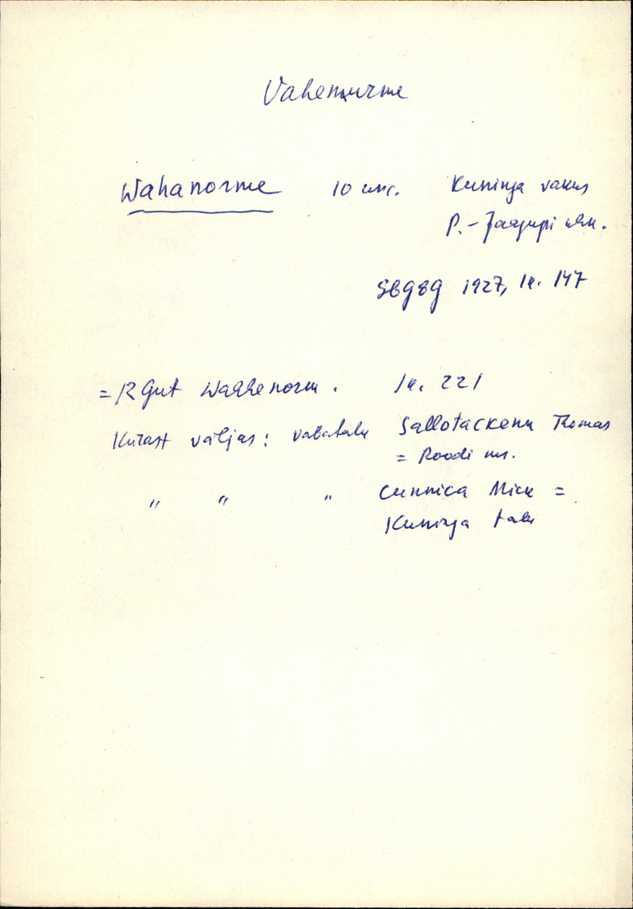 Vahenurme
Wahanorme 10 unc. Kuninga vakus
P.-Jaagupi khk.
SBGEG 1927, lk. 147
= R Gut Waahenorm. lk. 221
Kurast väljas: vabatalu Sallotackenn Thomas
= Roodi ms.
" " " Cunnica Mick =
Kuninga talu